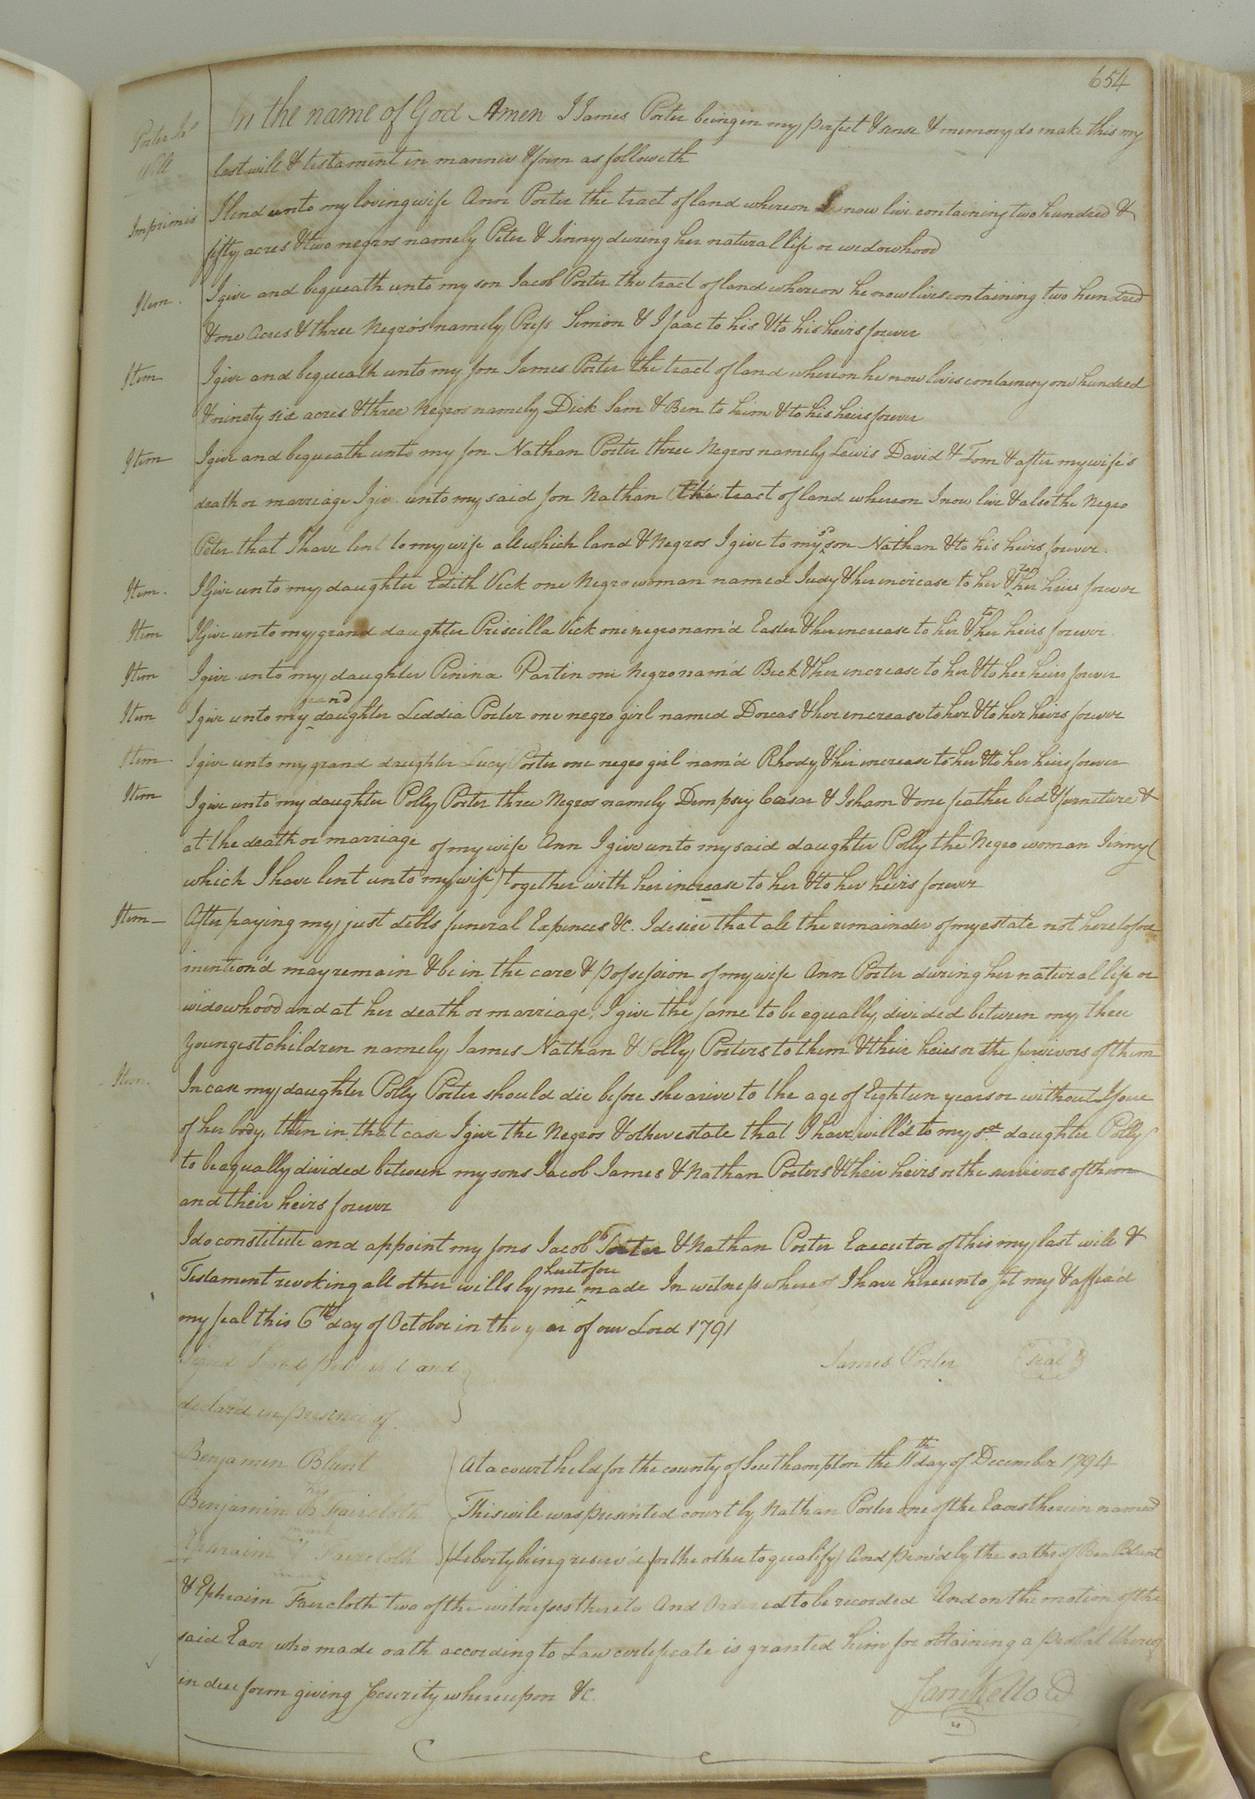 654
Porter Js
Will
In the name of God Amen I James Porter being in my perfect & sense & memory do make this my
last will & testament in manner & form as followeth
Imprimis I lend unto my loving wife Ann Porter the tract of land whereon I now live containing two hundred &
fifty acres & two negros namely Peter & Jinny during her natural life or widowhood
Item. I give and bequeath unto my son Jacob Porter the tract of land whereon he now lives containing two hundred
& one Acres & three Negro's namely Simon & Isaac to his & to his heirs forever
Item I give and bequeath unto my son James Porter the tract of land whereon he now lives containing one hundred
& ninety six acres & three Negros namely Dick Sam & Ben to him & to his heirs forever
Item I give and bequeath unto my son Nathan Porter three Negros namely Lewis David & Tom & after my wife's
death or marriage I give unto my said son Nathan the tract of land whereon I now live & also the Negro
Peter that I have lent to my wife all which land & Negros I give to my sd son Nathan & to his heirs forever.
Item. I Give unto my daughter Edith Vick one Negro woman named Judy & her increase to her & to her heirs forever
Item I Give unto my grand daughter Priscilla Vick one negro nam'd Easter & her increase to her & to her heirs forever.
Item I give unto my daughter Penina Parten one Negro nam'd Beck & her increase to her & to her heirs forever
Item I give unto my grand daughter Leddia Porter one negro girl named Dorcas & her increase to her & to her heirs forever
Item I give unto my grand daughter Lucy Porter one negro girl nam'd Rhody & her increase to her & to her heirs forever
Item I give unto my daughter Polly Porter three Negros namely Dempsey Ceasar & Isham & one feather bed & furneture &
at the death or marriage of my wife Ann I give unto my said daughter Polly the Negro woman Jinny (
which I have lent unto my wife) together with her increase to her & to her heirs forever
Item After paying my just debts funeral Expences &c. I desire that all the remainder of my estate not heretofore
mention'd may remain & be in the care & possession of my wife Ann Porter during her natural life or
widowhood and at her death or marriage, I give the same to be equally divided between my three
youngest children namely James Nathan & Polly Porters to them & their heirs or the survivors of them
Item. In case my daughter Polly Porter should die before she arive to the age of Eighteen years or without Issue
of her body then in that case I give the Negros & other estate that I have will'd to my sd daughter Polly
to be equally divided between my sons Jacob James & Nathan Porters & their heirs or the survivors of them
and their heirs forever
I do constitute and appoint my sons Jacob Porter & Nathan Porter Executor of this my last will &
Testament revoking all other wills by me heretofore made In witness whereof I have hereunto set my & affixd
my seal this 6th day of October in the year of our Lord 1791
James Porter (seal)
and
declard in presence of
Benjamin Blunt
Benjamin his B mark Faircloth
Ephraim Faircloth
At a court held for the county of Southampton the 11th day of December 1794
This will was presented court by Nathan Porter one of the Exors therein named
(Liberty being reserv'd for the other to qualify) And prov'd by the oaths of Ben Blunt
& Ephraim Faircloth two of the witnesses thereto And Ordered to be recorded And on the motion of the
said Exor who made oath according to Law certificate is granted him for obtaining a probat thereof
in due form giving security whereupon &c.
Sam Kello Cl